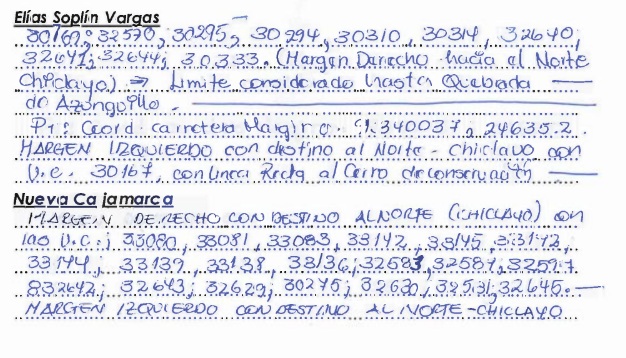 Elías Soplín Vargas
30169; 32570, 30295, 30294, 30310, 30314, 32640,
32641; 32644; 30333. (Margen Derecho hacia el Norte
Chiclayo) ⇒ Limite considerado hasta Quebrada
de
P1: Coord. carretera Margin 9.340037, 24635.2
MARGEN IZQUIERDO con destino al Norte - Chiclayo con
U.C. 30167, con linea Recta al Cerro de conservación
Nueva Cajamarca
MARGEN DERECHO CON DESTINO AL NORTE (CHICLAYO) con
las U.C.; 33080, 33081, 33083, 33142, 33145, 33172,
33144; 33139, 33138, 33136; 32583, 32587, 32597
832642; 32643; 32629; 30275; 32630, 32531; 32645.
MARGEN IZQUIERDO CON DESTINO AL NORTE-CHICLAYO